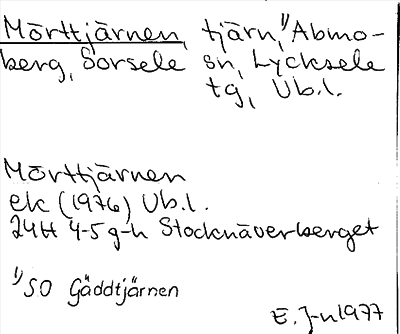 Mörttjärnen, tjärn, 1) Abmo-
berg, Sorsele sn, Lycksele
tg, Vb.l.
Mörttjärnen
ek (1976) Vb.l.
24H 4-5 g-h Stocknäverberget
1) SO Gäddtjärnen
E. J-n 1977